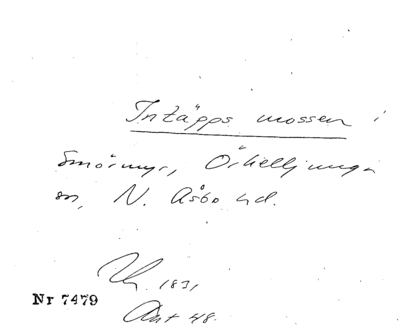 Intäpps mossen i
Smörmyr, Örkelljunga
sn, N. Åsbo hd.
1831
Nr 7479
Ant 48.